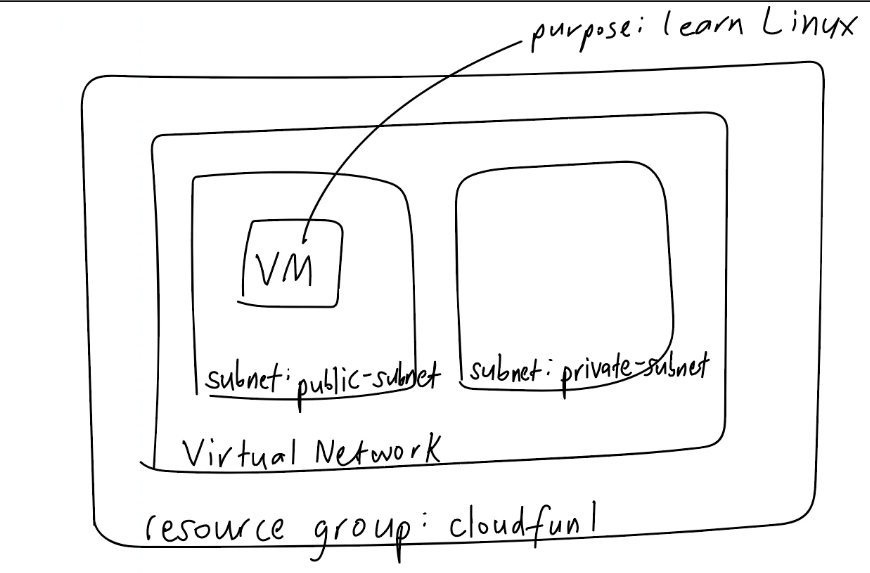 purpose: learn Linux
VM
subnet: public-subnet
subnet: private-subnet
Virtual Network
resource group: cloudfun1